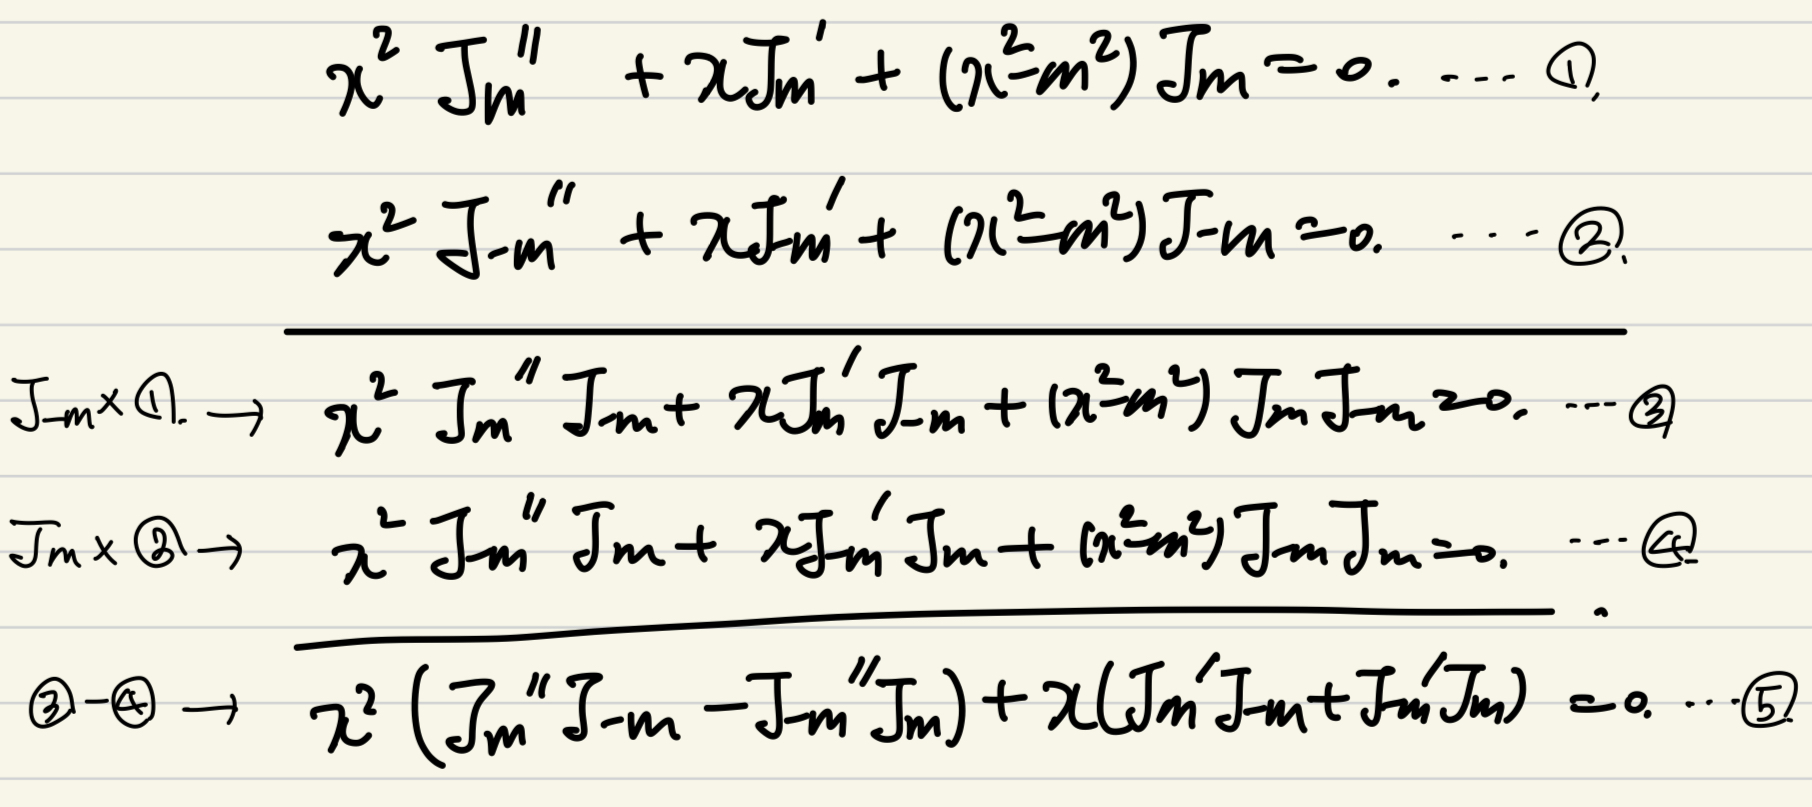 x² Jm'' + xJm' + (x²-m²) Jm = 0. ---- ①.
x² J-m'' + xJ-m' + (x²-m²) J-m = 0. ---- ②.
J-m × ①. → x² Jm'' J-m + xJm' J-m + (x²-m²) Jm J-m = 0. ---- ③
Jm × ② → x² J-m'' Jm + xJ-m' Jm + (x²-m²) J-m Jm = 0. ---- ④
③-④ → x² (Jm'' J-m - J-m'' Jm) + x(Jm' J-m + J-m' Jm) = 0. ---- ⑤